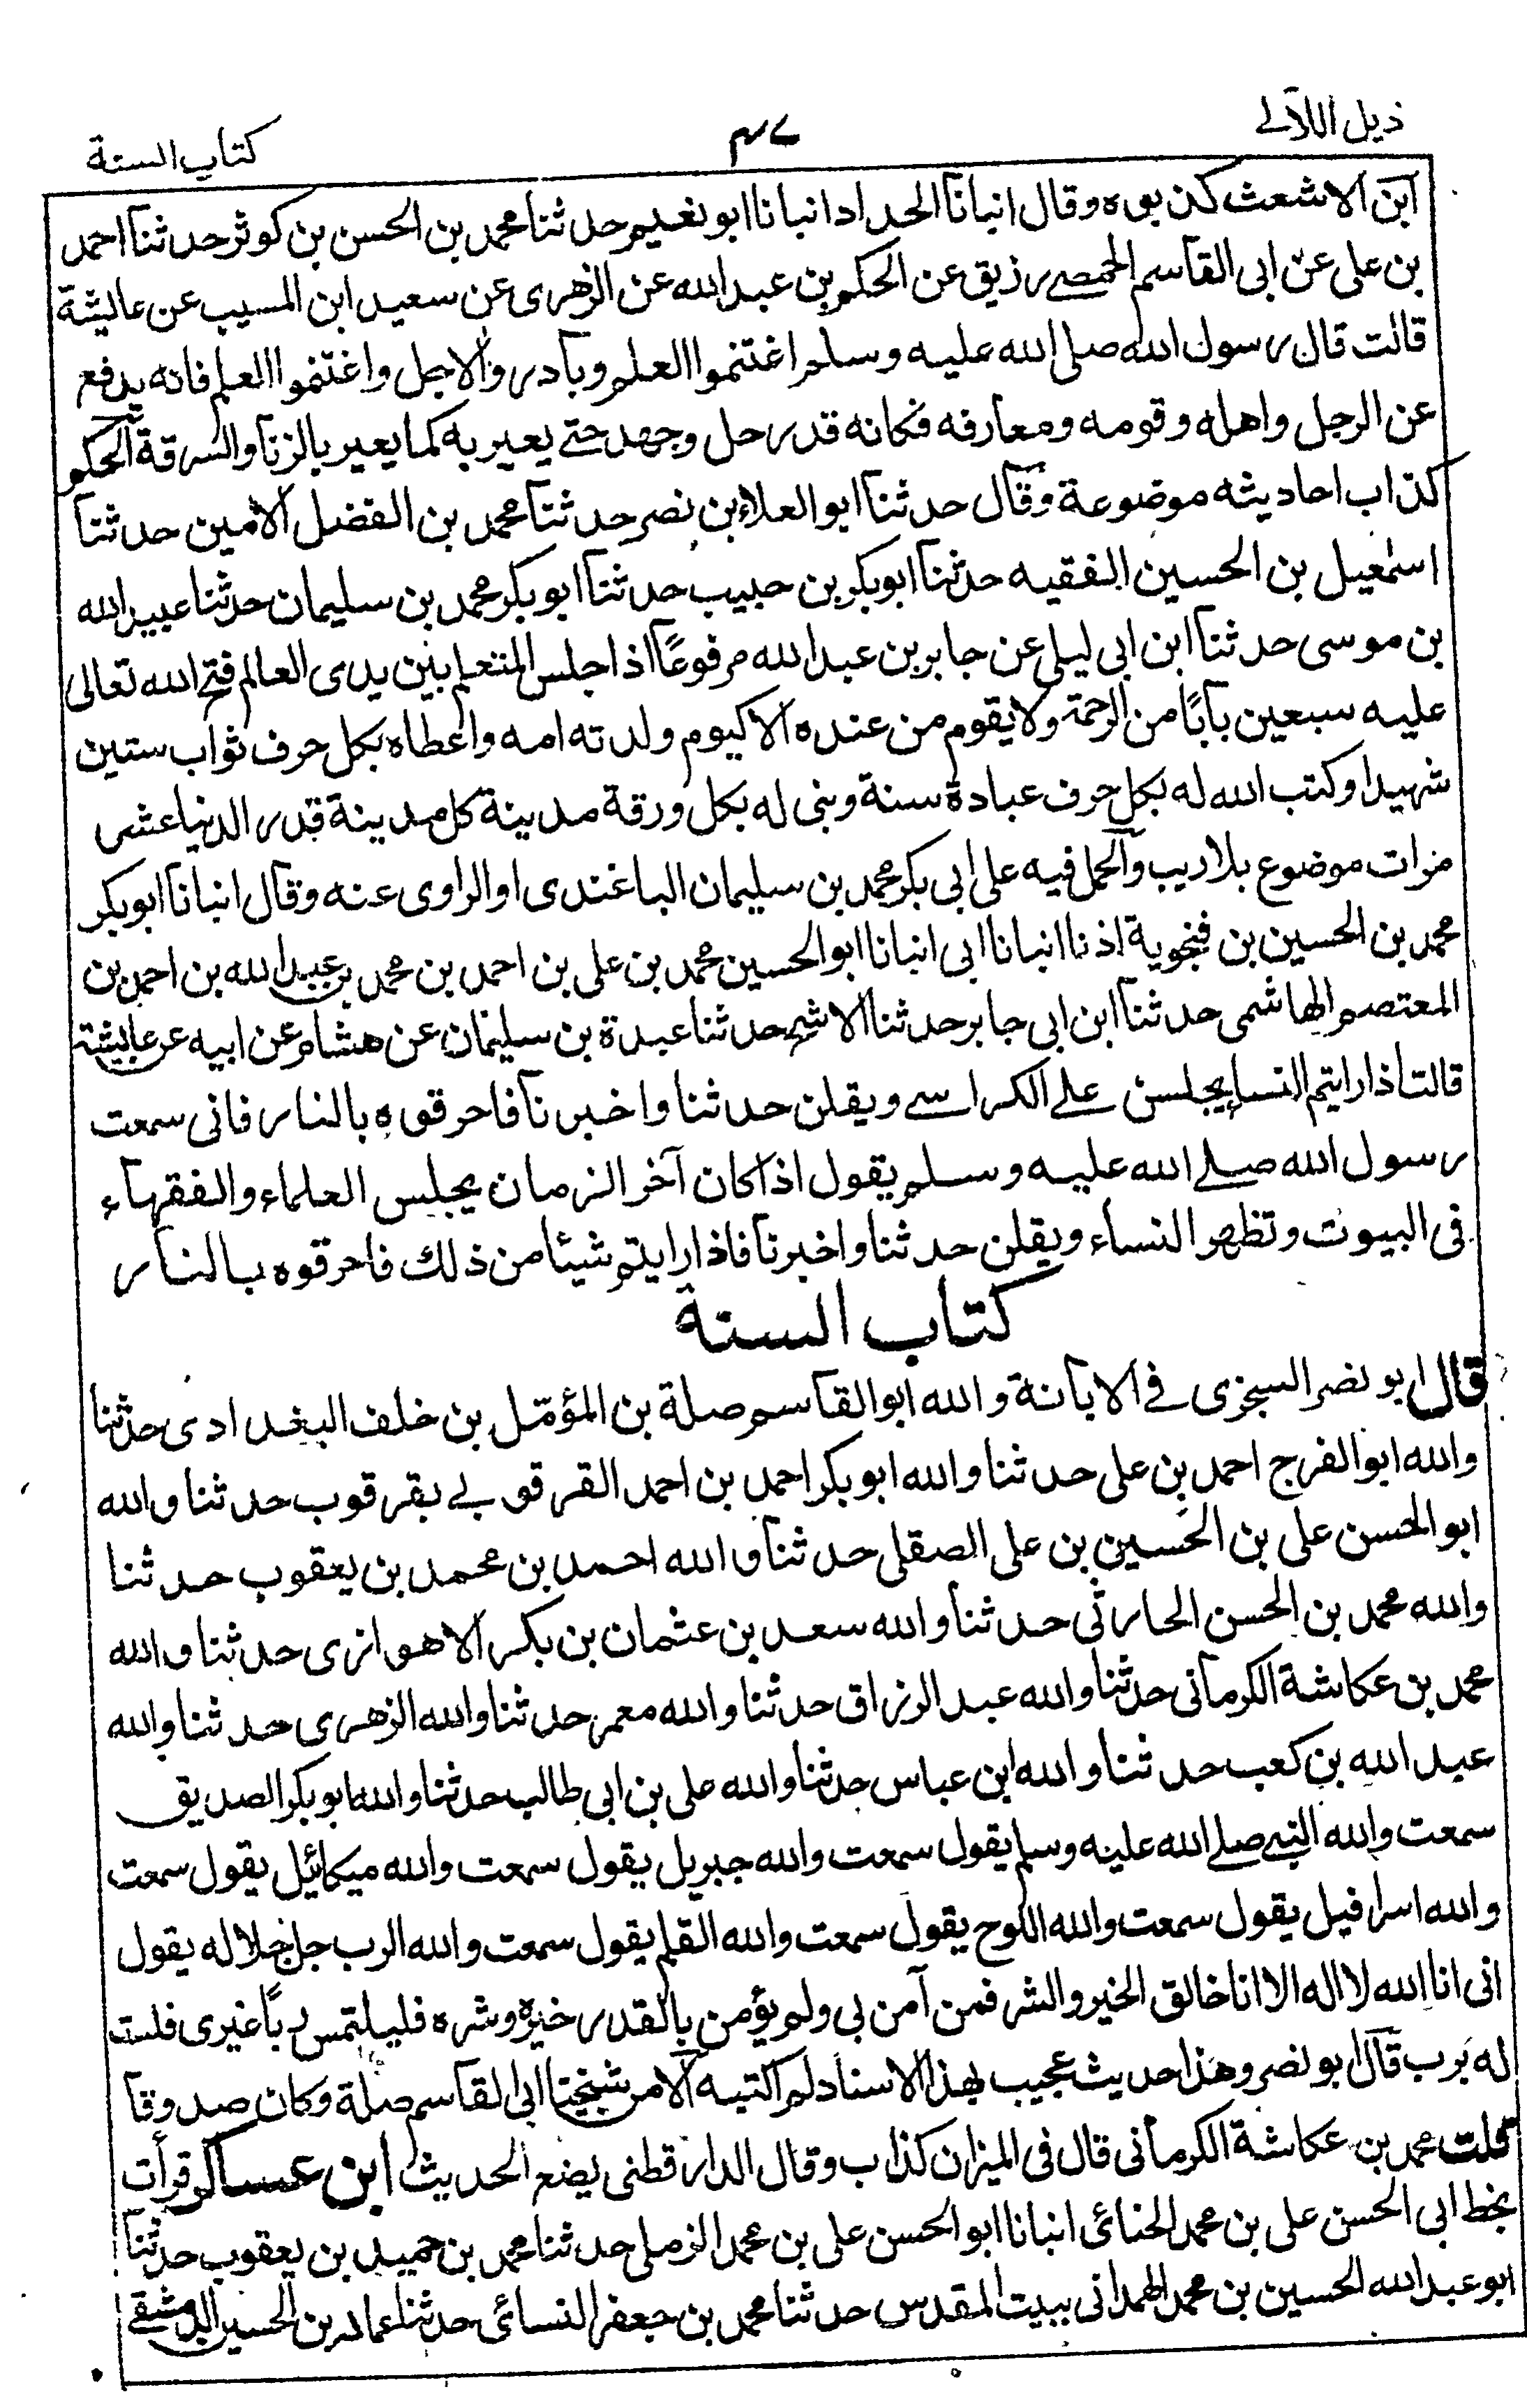 ذيل اللآلے
٤٧
كتاب السنة
ابن الاشعث كذبوه وقال انبانا الحداد انبانا ابو نعيم حدثنا محمد بن الحسن بن كوثر حدثنا احمد
بن على عن ابى القاسم الحمصے رزيق عن الحكم بن عبد الله عن الزهرى عن سعيد ابن المسيب عن عايشة
قالت قال رسول الله صلى الله عليه وسلم اغتنموا العلم وبادروا الاجل واغتنموا العلم فانه يدفع
عن الرجل واهله وقومه ومعارفه فكانه قد رحل وجهد حتے يعير به كما يعير بالزنا والسرقة الحكم
كذاب احاديثه موضوعة وقال حدثنا ابو العلاء بن نصر حدثنا محمد بن الفضل الامين حدثنا
اسمعيل بن الحسين الفقيه حدثنا ابو بكر بن حبيب حدثنا ابو بكر محمد بن سليمان حدثنا عبيد الله
بن موسى حدثنا ابن ابى ليلى عن جابر بن عبد الله مرفوعًا اذا جلس المتعلم بين يدى العالم فتح الله تعالى
عليه سبعين بابًا من الرحمة ولا يقوم من عنده الا كيوم ولدته امه واعطاه بكل حرف ثواب ستين
شهيدا وكتب الله له بكل حرف عبادة سنة وبنى له بكل ورقة مدينة كل مدينة قدر الدنيا عشر
مرات موضوع بلا ريب والحمل فيه على ابى بكر محمد بن سليمان الباغندى او الراوى عنه وقال انبانا ابو بكر
محمد بن الحسين بن فنجوية اذنا انبانا ابى انبانا ابو الحسين محمد بن على بن احمد بن محمد بن عبيد الله بن احمد بن
المعتصم الهاشمى حدثنا ابن ابى جابر حدثنا الاشج حدثنا عبدة بن سليمان عن هشام عن ابيه عن عايشة
قالت اذا رايتم النساء يجلسن علے الكراسے ويقلن حدثنا واخبرنا فاحرقوه بالنار فانى سمعت
رسول الله صلے الله عليه وسلم يقول اذا كان آخر الزمان يجلس العلماء والفقهاء
فى البيوت وتظهر النساء ويقلن حدثنا واخبرنا فاذا رايتم شيئا من ذلك فاحرقوه بالنار
كتاب السنة
قال ابو نصر السجزى فے الابانة والله ابو القاسم صلة بن المؤمّل بن خلف البغدادى حدثنا
والله ابو الفرج احمد بن على حدثنا والله ابو بكر احمد بن احمد القرقوبے بقرقوب حدثنا والله
ابو الحسن على بن الحسين بن على الصقلى حدثنا والله احمد بن محمد بن يعقوب حدثنا
والله محمد بن الحسن الحارثى حدثنا والله سعد بن عثمان بن بكر الاهوازى حدثنا والله
محمد بن عكاشة الكرمانى حدثنا والله عبد الرزاق حدثنا والله معمر حدثنا والله الزهرى حدثنا والله
عبد الله بن كعب حدثنا والله ابن عباس حدثنا والله على بن ابى طالب حدثنا والله ابو بكر الصديق
سمعت والله النبے صلے الله عليه وسلم يقول سمعت والله جبريل يقول سمعت والله ميكائيل يقول سمعت
والله اسرافيل يقول سمعت والله اللوح يقول سمعت والله القلم يقول سمعت والله الرب جل جلاله يقول
انى انا الله لا اله الا انا خالق الخير والشر فمن آمن بى ولم يؤمن بالقدر خيره وشره فليلتمس ربًا غيرى فلست
له برب قال ابو نصر وهذا حديث عجيب بهذا الاسناد لم اكتبه الا من شيخنا ابى القاسم صلة وكان صدوقا
قلت محمد بن عكاشة الكرمانى قال فى الميزان كذاب وقال الدارقطنى يضع الحديث ابن عساكر قرأت
بخط ابى الحسن على بن محمد الحنائى انبانا ابو الحسن على بن محمد الزملى حدثنا محمد بن حميد بن يعقوب حدثنا
ابو عبد الله الحسين بن محمد الهمدانى ببيت المقدس حدثنا محمد بن جعفر النسائى حدثنا عامر بن الحسين الدمشقے